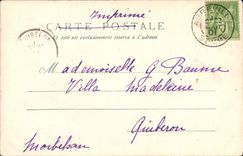 Imprimé
CARTE POSTALE
Ce côté est exclusivement réservé à l'adresse
Mademoiselle G Baume
Villa Madeleine
Quiberon
Morbihan